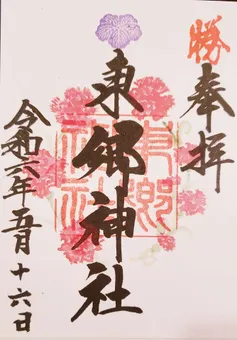 勝
奉拝
東郷神社
東郷神社
令和六年五月十六日